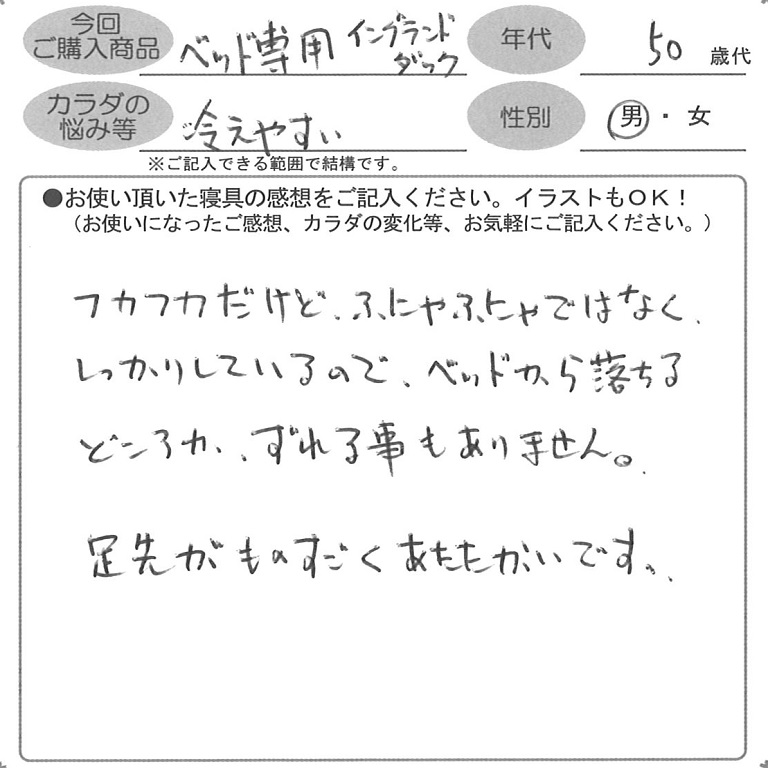 今回
ご購入商品
ベッド専用 イングランド
ダック
年代
50 歳代
カラダの
悩み等
冷えやすい
性別
男・女
※ご記入できる範囲で結構です。
●お使い頂いた寝具の感想をご記入ください。イラストもOK！
（お使いになったご感想、カラダの変化等、お気軽にご記入ください。）
フカフカだけど、ふにゃふにゃではなく、
しっかりしているので、ベッドから落ちる
どころか、ずれる事もありません。
足先がものすごくあたたかいです。